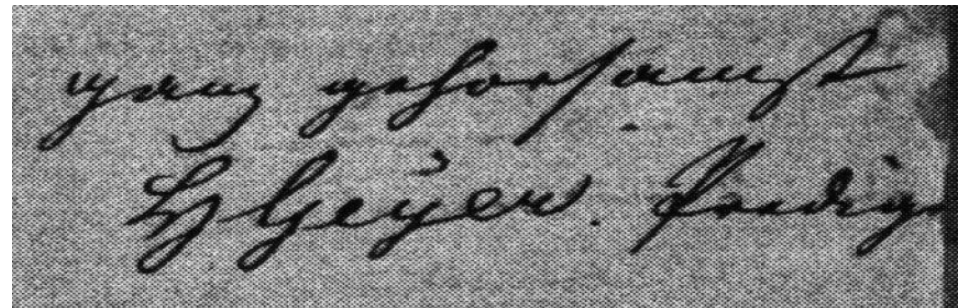 ganz gehorsamst
H Geÿer. Predige